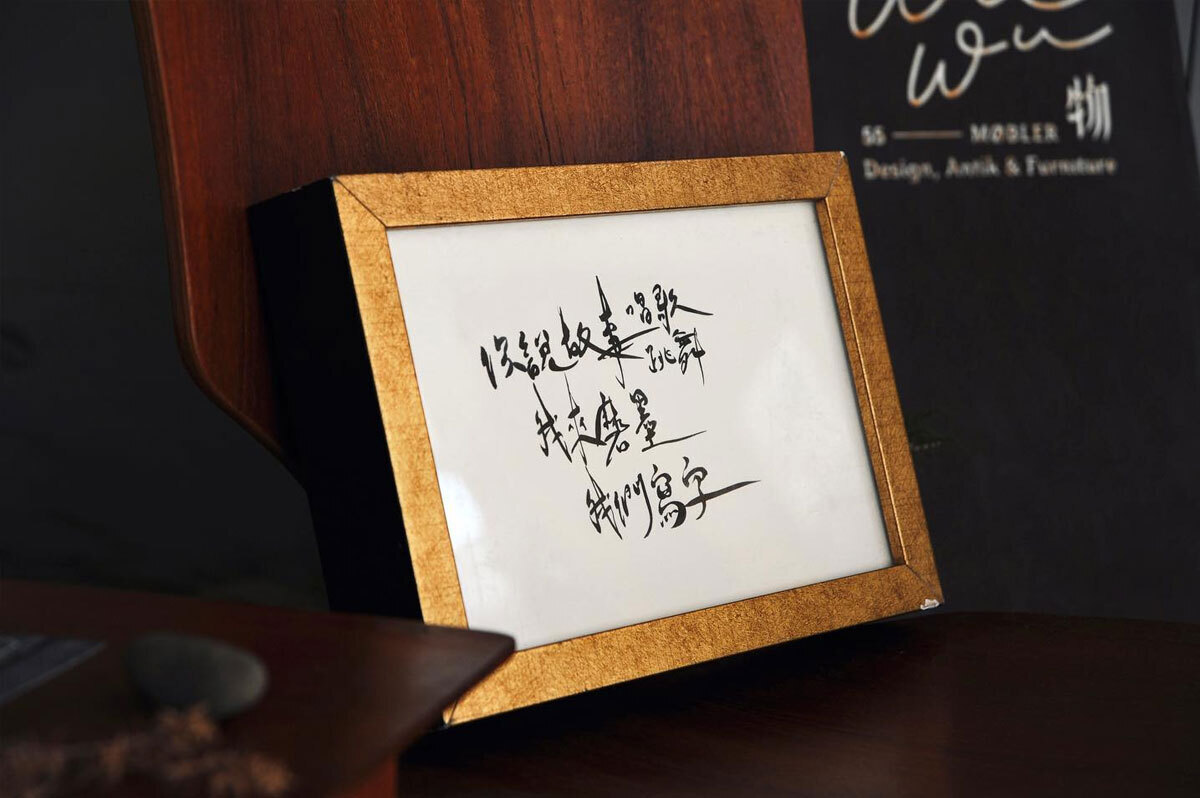 你說故事唱歌
跳舞
我來磨墨
我們寫字
Wu
55 MØBLER 物
Design, Antik & Furnature